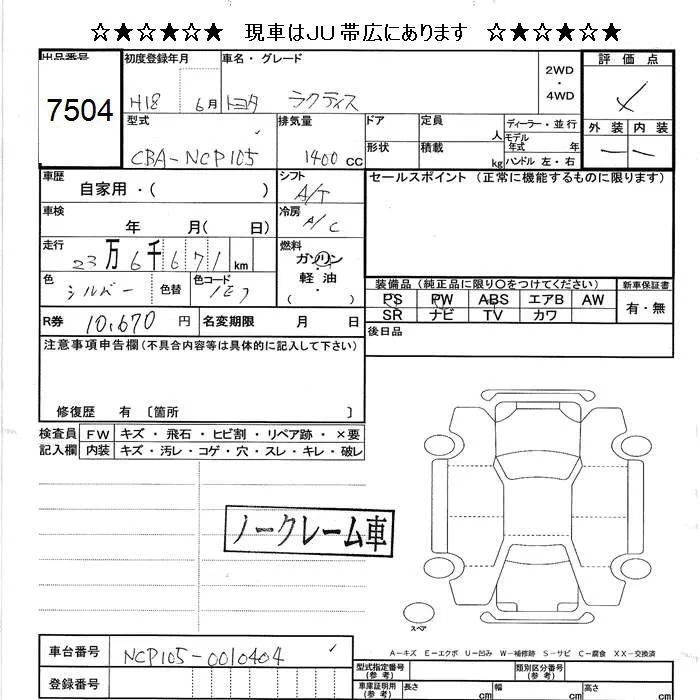 ☆★☆★☆★☆ 現車はJU帯広にあります ☆★☆★☆★☆
出品番号 初度登録年月 車名・グレード 2WD・4WD 評価点
7504 H18 6月 トヨタ ラクティス
型式 排気量 ドア 定員 人 ディーラー・並行 外装 内装
CBA-NCP105 1400 CC 形状 積載 kg モデル年式 年 ハンドル 左・右 — —
車歴 自家用・( ) シフト A/T セールスポイント (正常に機能するものに限ります)
車検 年 月( 日) 冷房 A/C
走行 23万6千671km 燃料 ガソリン・軽油 ( )
色 シルバー 色替 色コード 1E7
装備品 (純正品に限り○をつけてください) 新車保証書
PS PW ABS エアB AW 有・無
SR ナビ TV カワ
R券 10,670 円 名変期限 月 日 後日品
注意事項申告欄 (不具合内容等は具体的に記入して下さい)
修復歴 有 〔箇所 〕
検査員記入欄 FW キズ・飛石・ヒビ割・リペア跡・×要
内装 キズ・汚レ・コゲ・穴・スレ・キレ・破レ
ノークレーム車
スペア
A-キズ E-エクボ U-凹み W-補修跡 S-サビ C-腐食 XX-交換済
車台番号 NCP105-0010404
型式指定番号 (参考) 類別区分番号 (参考)
登録番号 車庫証明用 (参考) 長さ cm 幅 cm 高さ cm